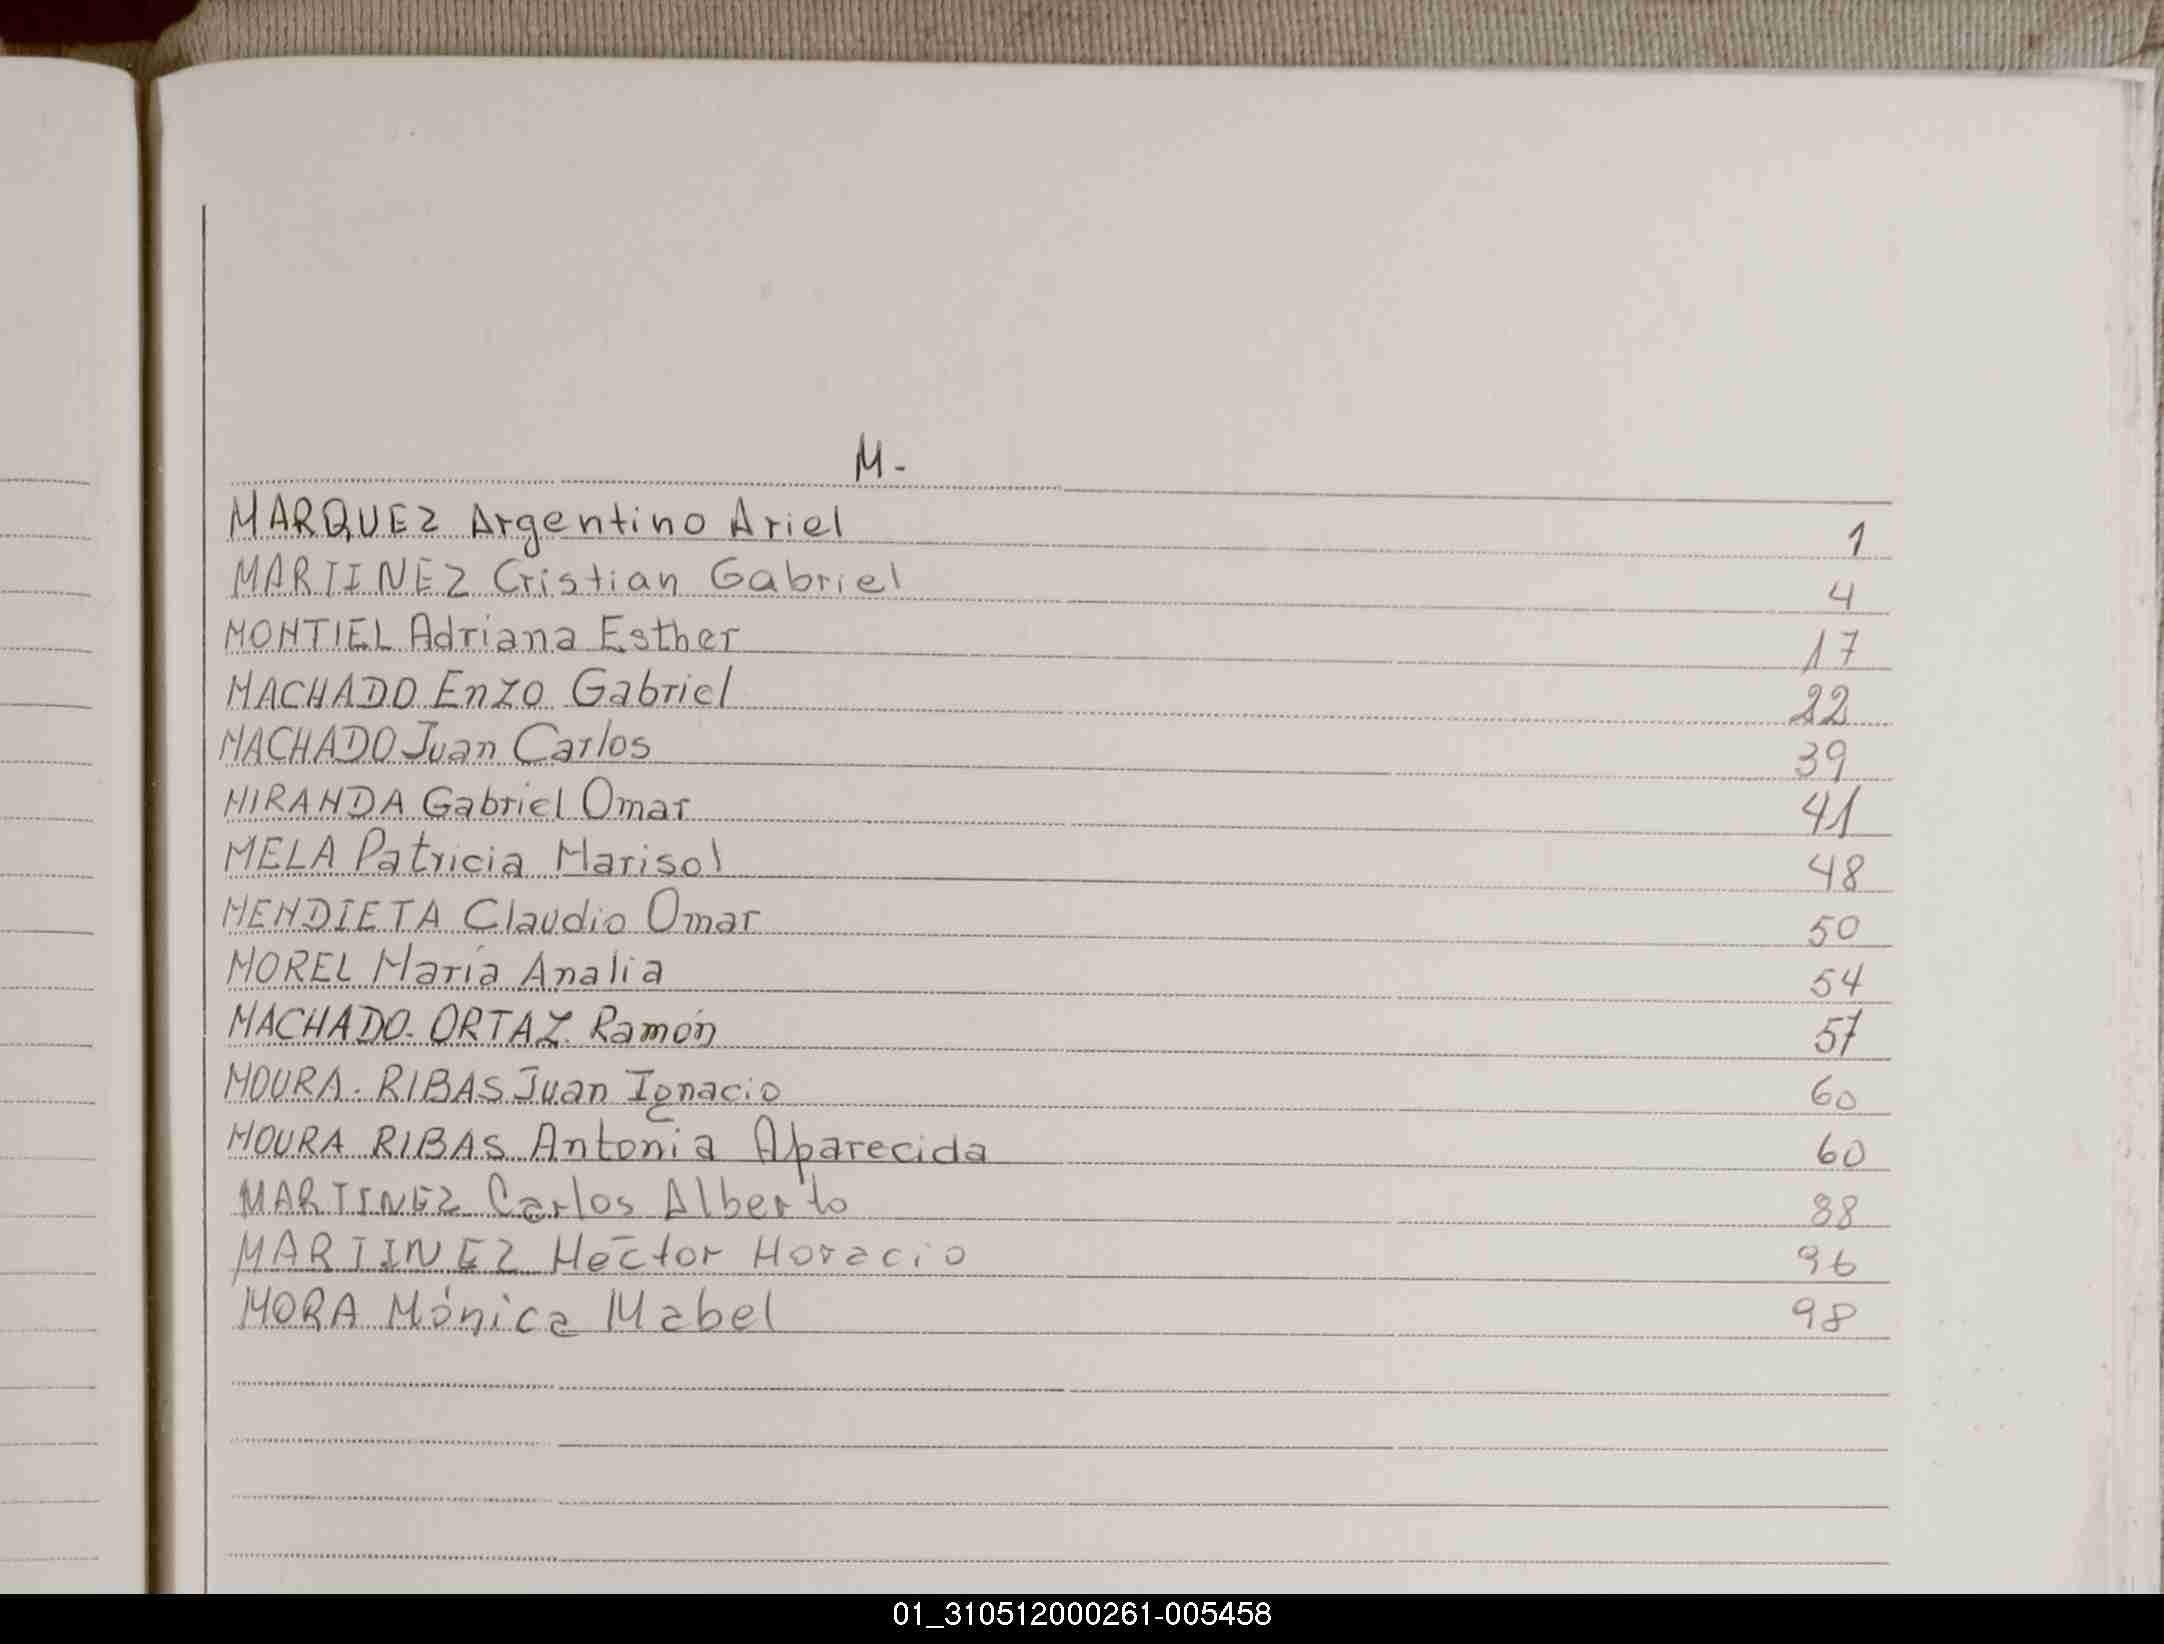 M-
MARQUEZ Argentino Ariel 1
MARTINEZ Cristian Gabriel 4
MONTIEL Adriana Esther 17
MACHADO Enzo Gabriel 22
MACHADO Juan Carlos 39
MIRANDA Gabriel Omar 41
MELA Patricia Marisol 48
MENDIETA Claudio Omar 50
MOREL María Analia 54
MACHADO-ORTAZ Ramón 57
MOURA-RIBAS Juan Ignacio 60
MOURA RIBAS Antonia Aparecida 60
MARTINEZ Carlos Alberto 88
MARTINEZ Hector Horacio 96
MORA Mónica Mabel 98
01_310512000261-005458